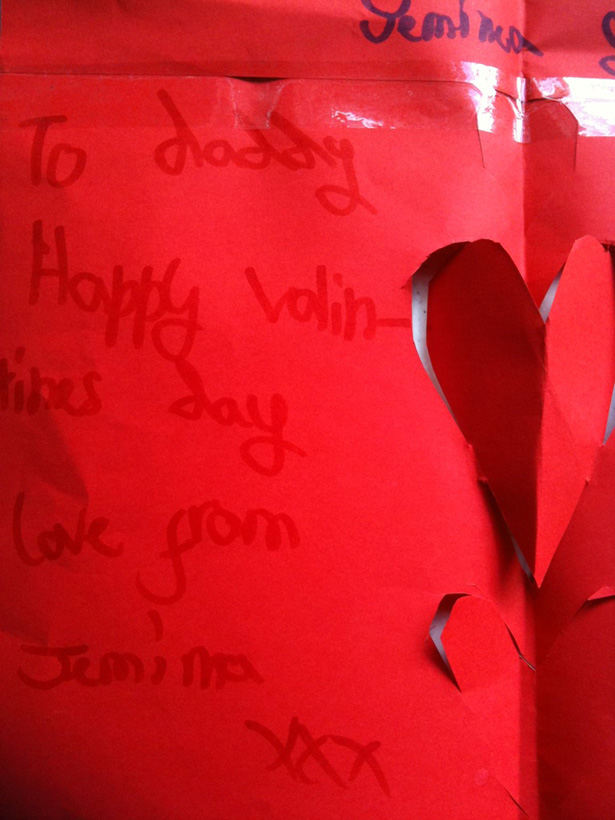 Jemima
To daddy
Happy Valin-
tines day
love from
Jemima
xxx